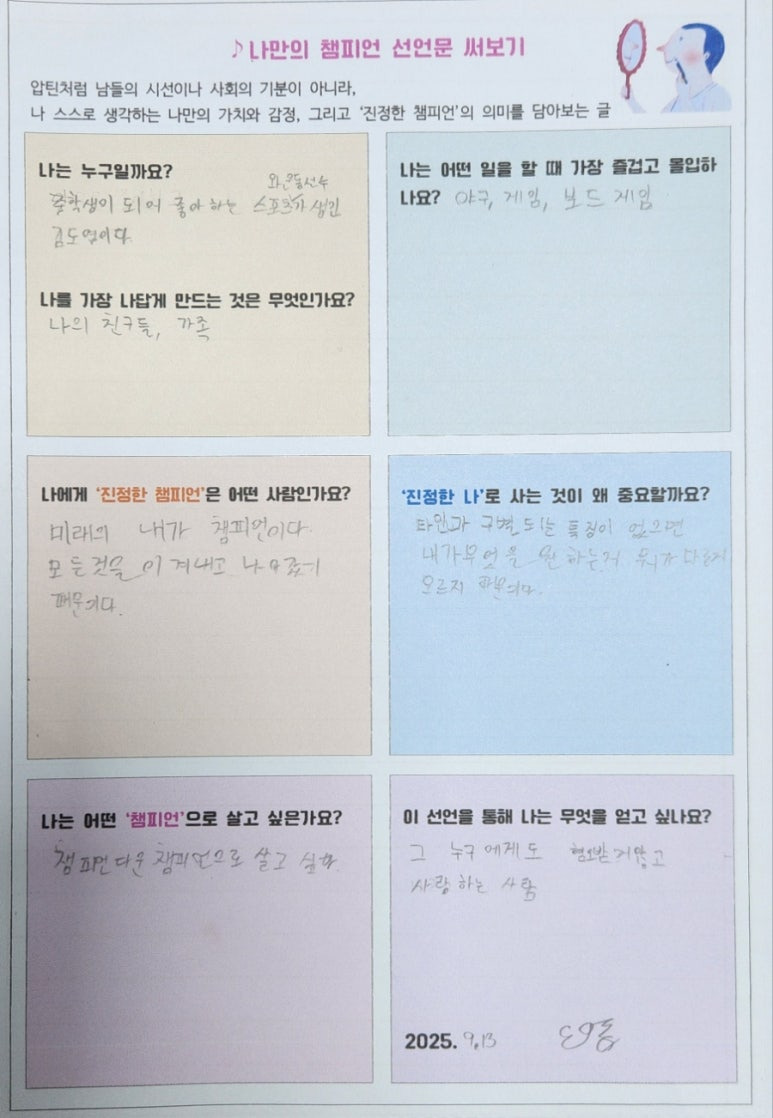 ♪나만의 챔피언 선언문 써보기
압틴처럼 남들의 시선이나 사회의 기분이 아니라,
나 스스로 생각하는 나만의 가치와 감정, 그리고 '진정한 챔피언'의 의미를 담아보는 글
나는 누구일까요?
와 운동선수
중학생이 되어 좋아하는 스포츠가 생긴
김도엽이다.
나를 가장 나답게 만드는 것은 무엇인가요?
나의 친구들, 가족
나는 어떤 일을 할 때 가장 즐겁고 몰입하
나요? 야구, 게임, 보드 게임
나에게 '진정한 챔피언'은 어떤 사람인가요?
미래의 내가 챔피언이다.
모든것을 이겨내고 나
때문이다.
'진정한 나'로 사는 것이 왜 중요할까요?
타인과 구별 되는 특징이 없으면
내가무엇을 원하는지 뭐가 다른지
모르지 때문이다.
나는 어떤 '챔피언'으로 살고 싶은가요?
챔피언 다운 챔피언으로 살고 싶다.
이 선언을 통해 나는 무엇을 얻고 싶나요?
그 누구에게도 혐오받지않고
사랑하는 사람
2025. 9.13